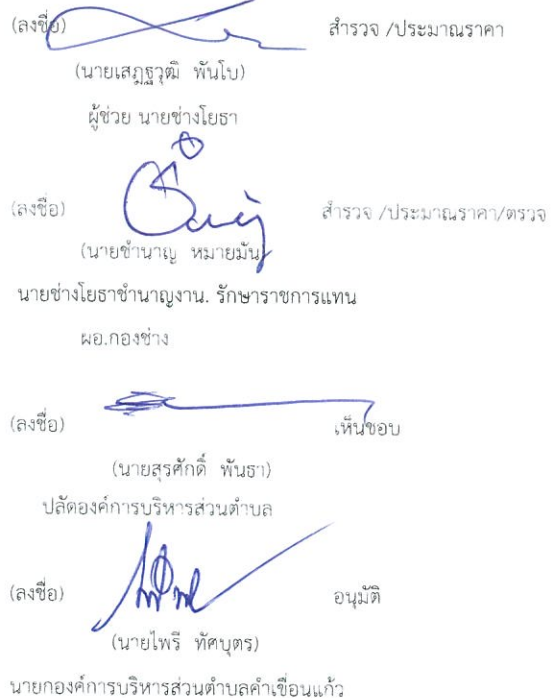 (ลงชื่อ) สำรวจ /ประมาณราคา
(นายเสฎฐวุฒิ พันโบ)
ผู้ช่วย นายช่างโยธา
(ลงชื่อ) สำรวจ /ประมาณราคา/ตรวจ
(นายชำนาญ หมายมัน)
นายช่างโยธาชำนาญงาน. รักษาราชการแทน
ผอ.กองช่าง
(ลงชื่อ) เห็นชอบ
(นายสุรศักดิ์ พันธา)
ปลัดองค์การบริหารส่วนตำบล
(ลงชื่อ) อนุมัติ
(นายไพรี ทัศบุตร)
นายกองค์การบริหารส่วนตำบลคำเขื่อนแก้ว